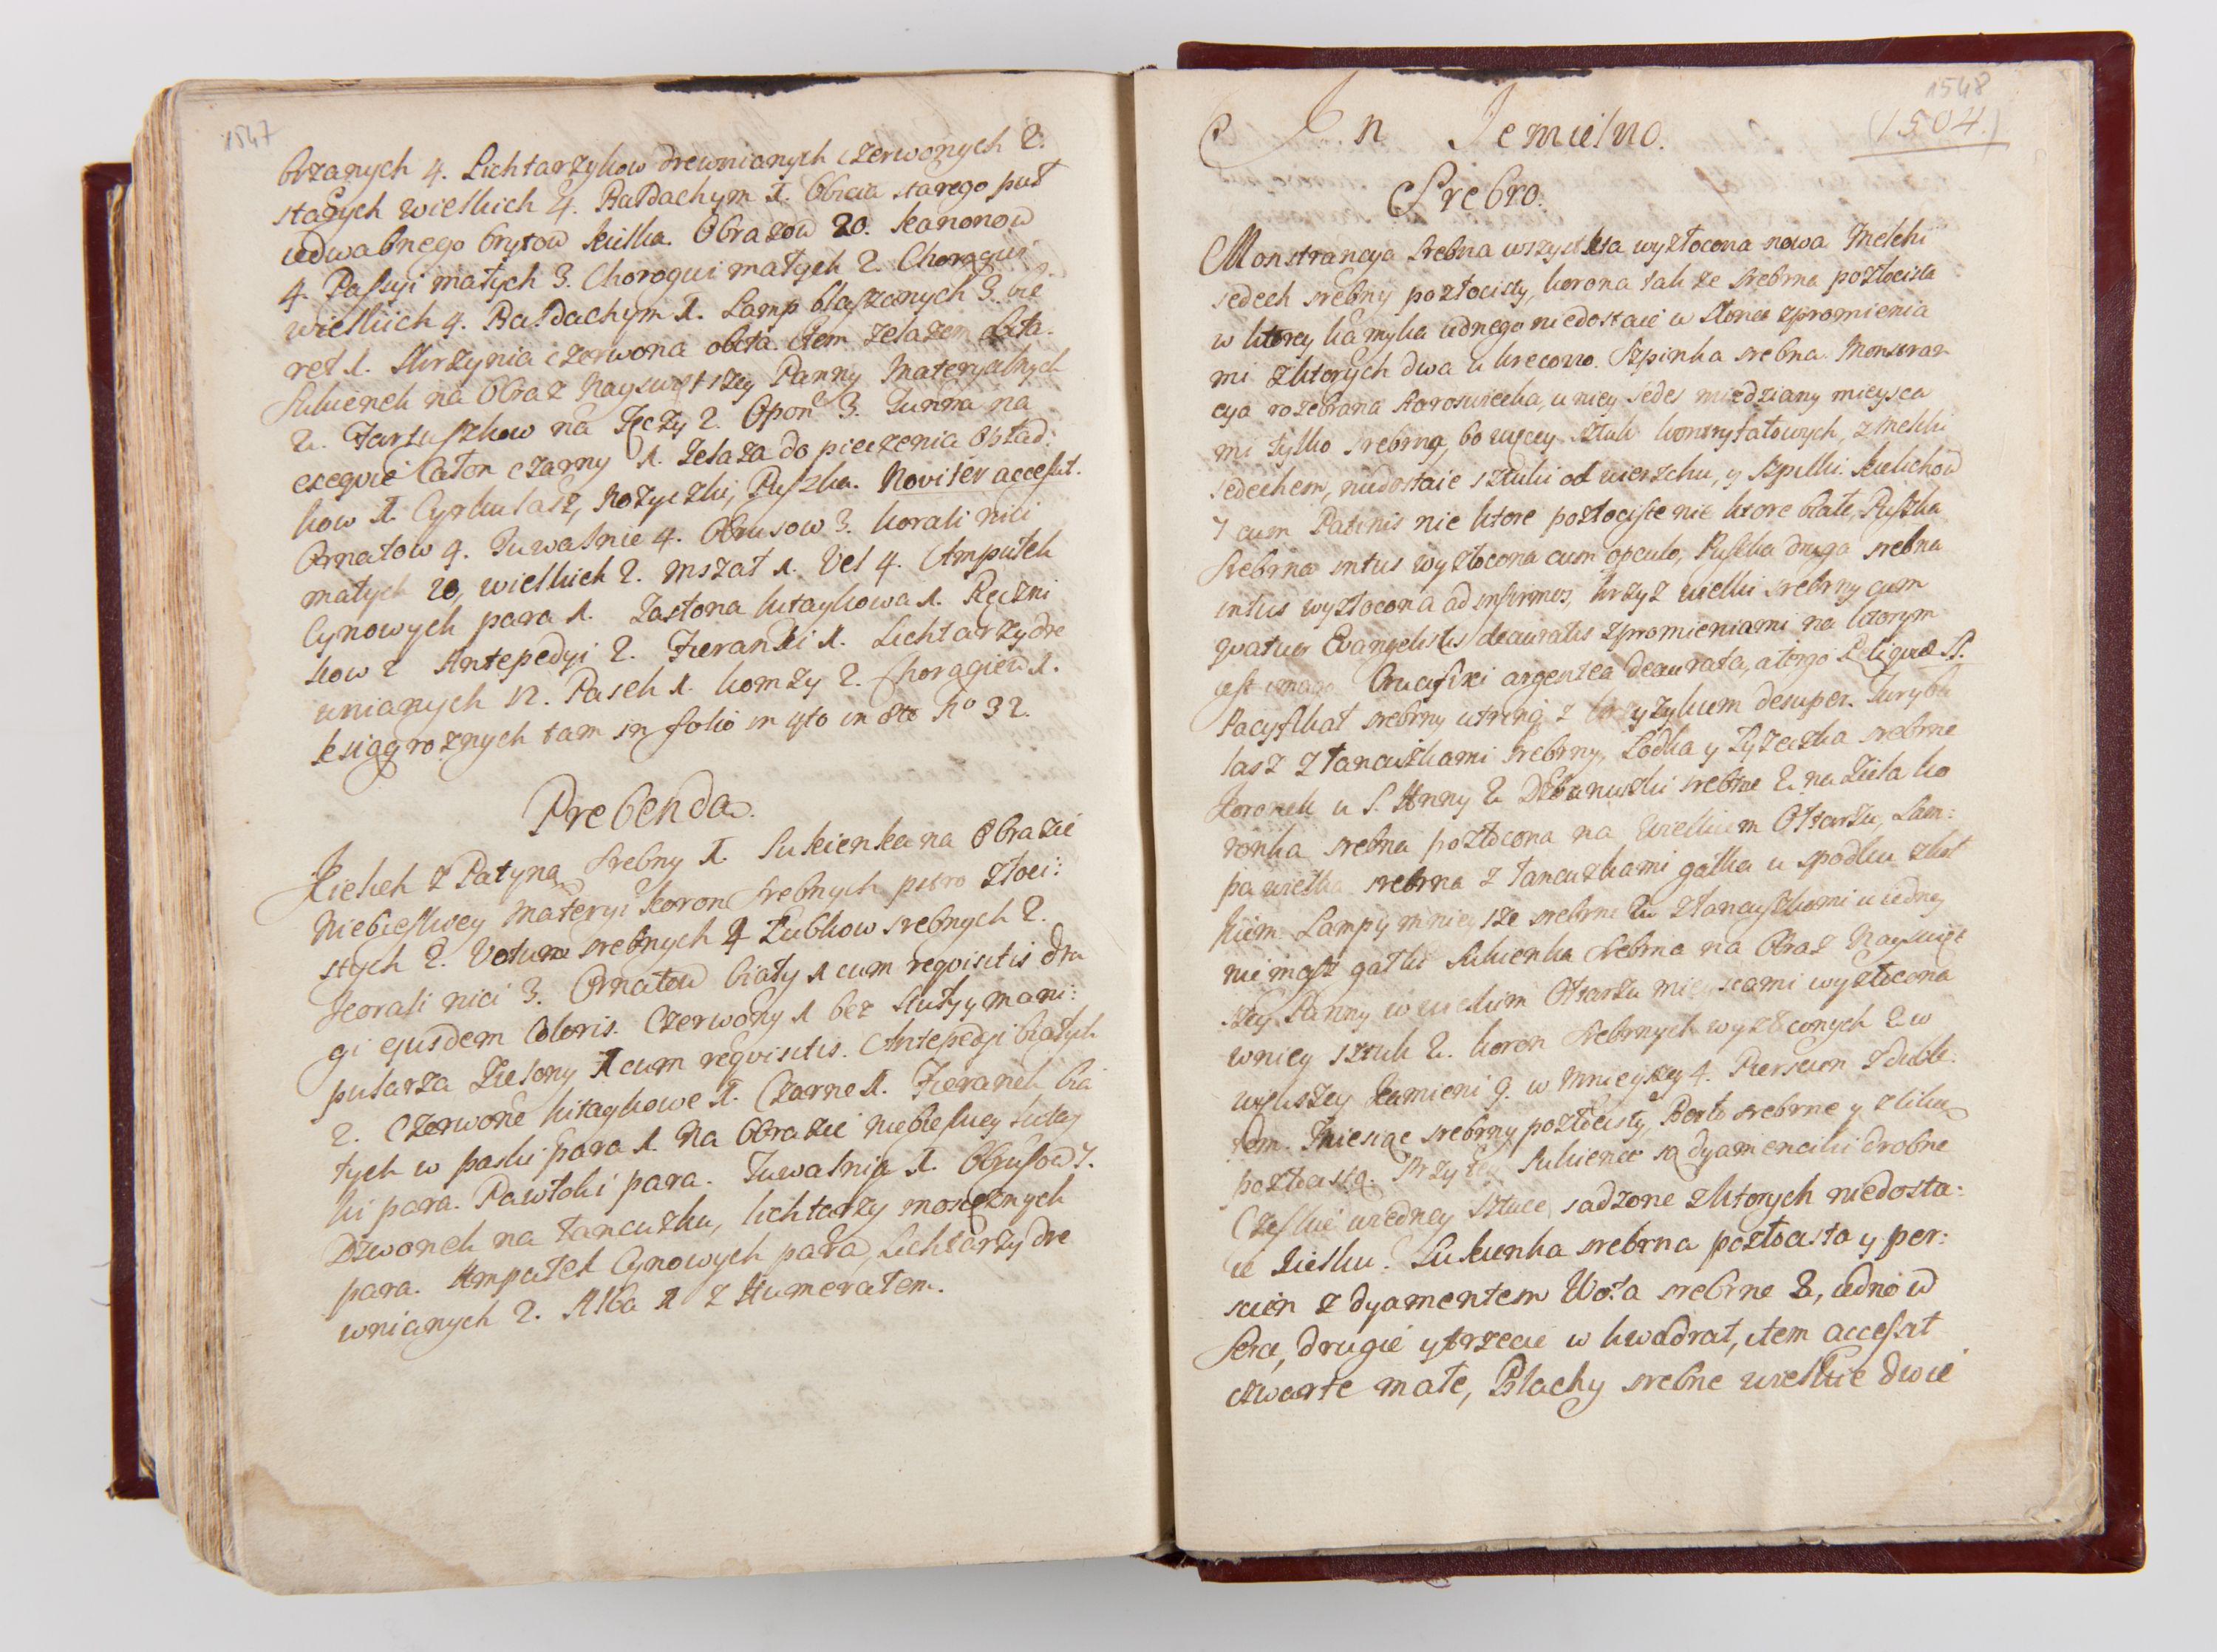 1547
brzanych 4. Lichtarzykow drewnianych czerwonych 2.
starych wielkich 4. Baldachym 1. Obicia starego puł
iedwabnego brytow kilka. Obrazow 20. Kanonow
4. Passyi małych 3. Chorogwi małych 2. Choragwi
wielkich 4. Baldachym 1. Lamp blaszanych 3.
ret 1. Skrzynia czerwona obita. Item zelazem
Sukienek na Obraz Nayswętszey Panny Materyalnych
2. Fartuszkow na Tęczy 2. Opon 3. Tunna na
exeqvie Caton czarny 1. Zelaza do pieczenia Opład:
kow 1. Cyrkulasz, Nozyczki, Puszka. Noviter accessit.
Ornatow 4. Tuwalnie 4. Obrusow 3. korali nici
małych 20, wielkich 2. mszał 1. Vel 4. Ampułek
Cynowych para 1. Zasłona kitaykowa 1. Ręczni
kow 2 Antepedyi 2. Firanki 1. Lichtarzy dre
wnianych 12. Pasek 1. komzy 2. Choragiew 1.
ksiąg roznych tam in folio in 4to in 8to No 32.
Prebenda.
Kielich z Patyną Srebny 1. Sukienka na Obrazie
Niebieskiey Materyi Koron Srebnych pstro złoci:
stych 2. Votum srebnych 4 Ząbkow srebnych 2.
Korali nici 3. Ornatow biały 1 cum reqvisitis dru
gi ejusdem Coloris. Czerwony 1 bez stuły y mani:
pularza Zielony 1 cum reqvisitis. Antepedyi białych
2. Czerwone kitaykowe 1. Czarne 1. Firanek bia
łych w paski para 1. Na Obrazie Niebieskiey
ki para. Pawłoki para. Tuwalnia 1. Obrusow 7.
Dzwonek na łancuzku, lichtarzy mosęznych
para. Ampułek Cynowych para, Lichtarzy dre
wnianych 2. Alba 1 z Humerałem.
1548
(1504.)
In Jemielno.
Srebro.
Monstrancya Srebna wszystka wyzłocona nowa Melchi
sedech srebny pozłocisty, korona takze srebrna pozłocista
w ktorey kamyka iednego niedostaie w Słonce zpromienia
mi zktorych dwa ukrecono. Szpinka srebna. Monstran
cya rozebrana Staroswiecka, u niey sedes miedziany mieysca
mi tylko srebrny, bo więcey sztuk kontryfałowych, z Melchi
sedechem, niedostaie sztuki od wierzchu, y szpilki. Kielichow
7 cum Patinis niektore pozłociste niektore białe, Puszka
Srebrna intus wyzłocona cum opculo, Puszka druga srebna
intus wyzłocona ad infirmos, krzyz wielki srebrny cum
qvatuor Evangelistis deauratis zpromieniami na ktorym
est imago Crucifixi argentea deaurata, a tergo Reliqviæ SS.
Pacyfikał srebrny utrinq z krzyzykiem desuper. Turybu
lasz z łancuszkami srebrny, Łodka y Łyzeczka srebrne
Koronek u S. Anny 2 Dzbanuszki srebrne 2. na Ziela ko
ronka srebna pozłocona na wielkim Ołtarzu, Lam:
pa wielka srebrna z łancuzkami gałka u spodku
kiem. Lampy mnieysze srebrne 2 złancuszkami u iedney
niemasz gałki Sukienka Srebrna na Obraz Nayswięt
szey Panny w wielkim Ołtarzu mieyscami wyzłocona
wniey sztuk 2. koron Srebrnych wyzłoconych 2 w
wyzszey Kamieni 9. w Mnieyszey 4. Piersien z dubl:
tem. Miesiąc srebrny pozłocisty, Berło srebrne y z lilią
pozłocistą. Przy tey Sukience są dyamenciki drobne
Czeskie wiedney sztuce sadzone zktorych niedosta:
ie kielku. Sukienka srebrna pozłocista y per:
scien z dyamentem Wota srebrne 3, iedno w
Serce, drugie y trzecie w kwadrat, item accessit
czwarte małe, Blachy srebne wielkie dwie